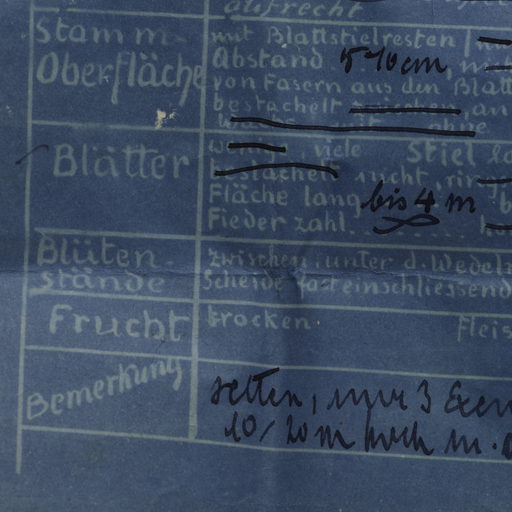 aufrecht
Stamm- mit Blattstielresten
Oberfläche Abstand 5-10 cm,
von Fasern aus den Blatt
bestachelt zwischen, an
ohne
Blätter wenig, viele Stiel
bestachelt nicht,
Fläche lang bis 4 m
Fiederzahl.
Blüten- zwischen, unter d. Wedeln
stände Scheide fast einschliessend
Frucht trocken. Fleis
Bemerkung selten, nur 3 Exem
10/20 m hoch m.